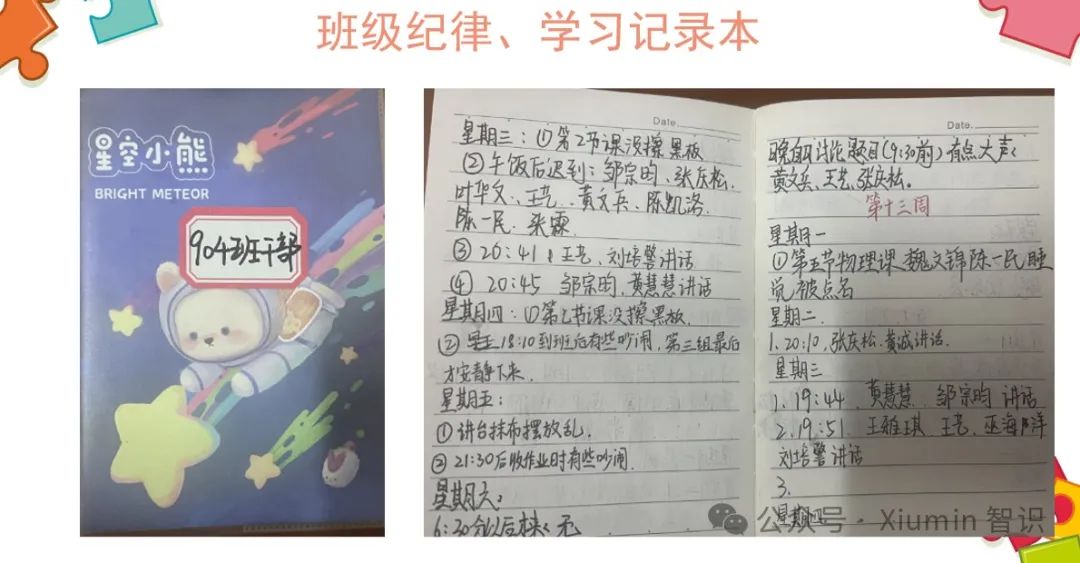 班级纪律、学习记录本
星空小熊
BRIGHT METEOR
904班干部
Date.
星期三：①第2节课没擦黑板
②午饭后迟到：邹宗昀、张庆松、
叶华文、王艺、黄文兵、陈凯洛、
陈一民、
③20:41：王艺、刘培警讲话
④ 20:45 邹宗昀、黄慧慧讲话
星期四：①第2节课没擦黑板.
② 18:10到班后有些吵闹，第三组最后
才安静下来.
星期五：
①讲台抹布摆放乱.
②21:30后收作业时有些吵闹.
星期六：
6:30分以后 无
Date.
晚自习讨论题目(9:30前)有点大声：
黄文兵、王艺、张庆松.
第十三周
星期一
①第五节物理课魏文锦陈一民睡
觉被点名
星期二.
1.20:10.张庆松.黄诚讲话.
星期三
1.19:44 黄慧慧 邹宗昀 讲话
2.19:51. 王雅琪 王艺、巫海洋
刘培警讲话
3.
星期四
公众号 · Xiumin 智识